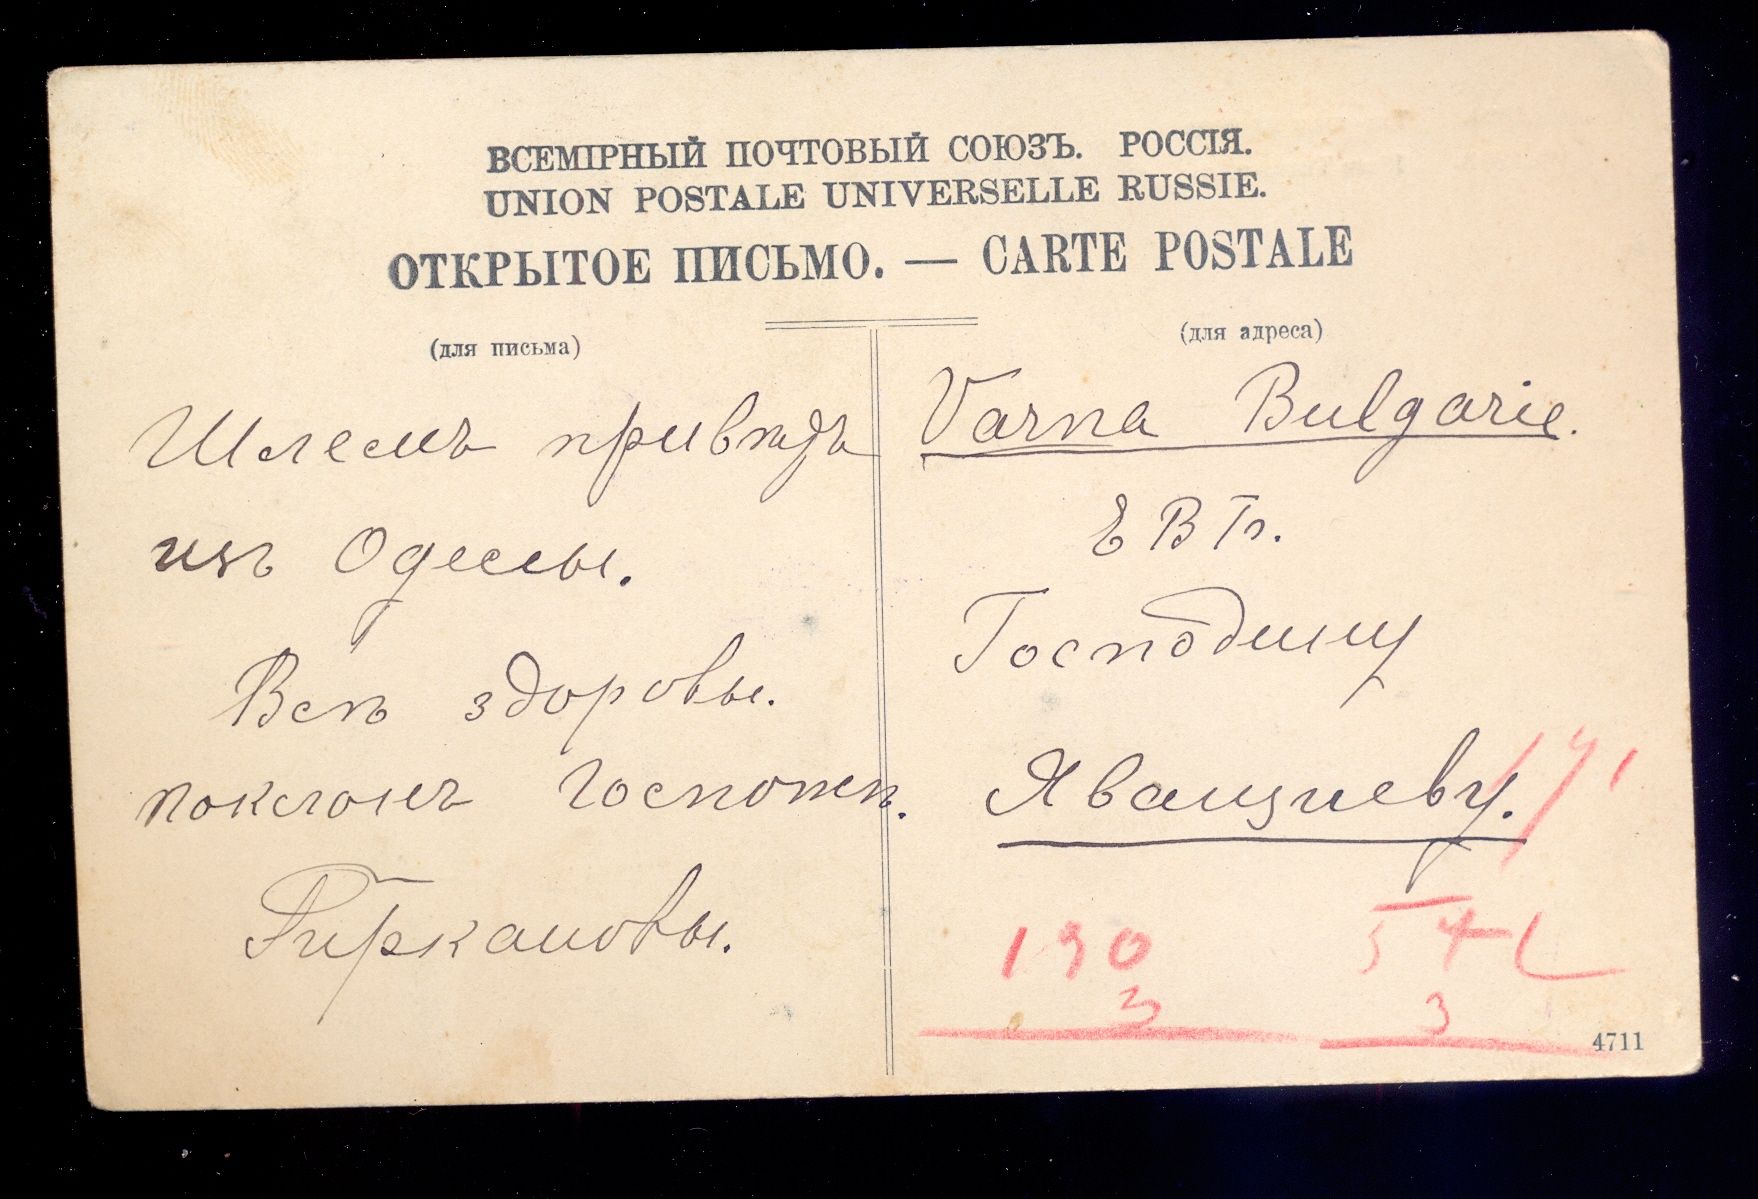 ВСЕМІРНЫЙ ПОЧТОВЫЙ СОЮЗЪ. РОССІЯ.
UNION POSTALE UNIVERSELLE RUSSIE.
ОТКРЫТОЕ ПИСЬМО. — CARTE POSTALE
(для письма)
Шлемъ привѣтъ
изъ Одессы.
Всѣ здоровы.
поклонъ Госпожѣ.
(для адреса)
Varna Bulgarie.
Е В Б.
Господину
Явашчиеву.
171
190
3
542
3
4711